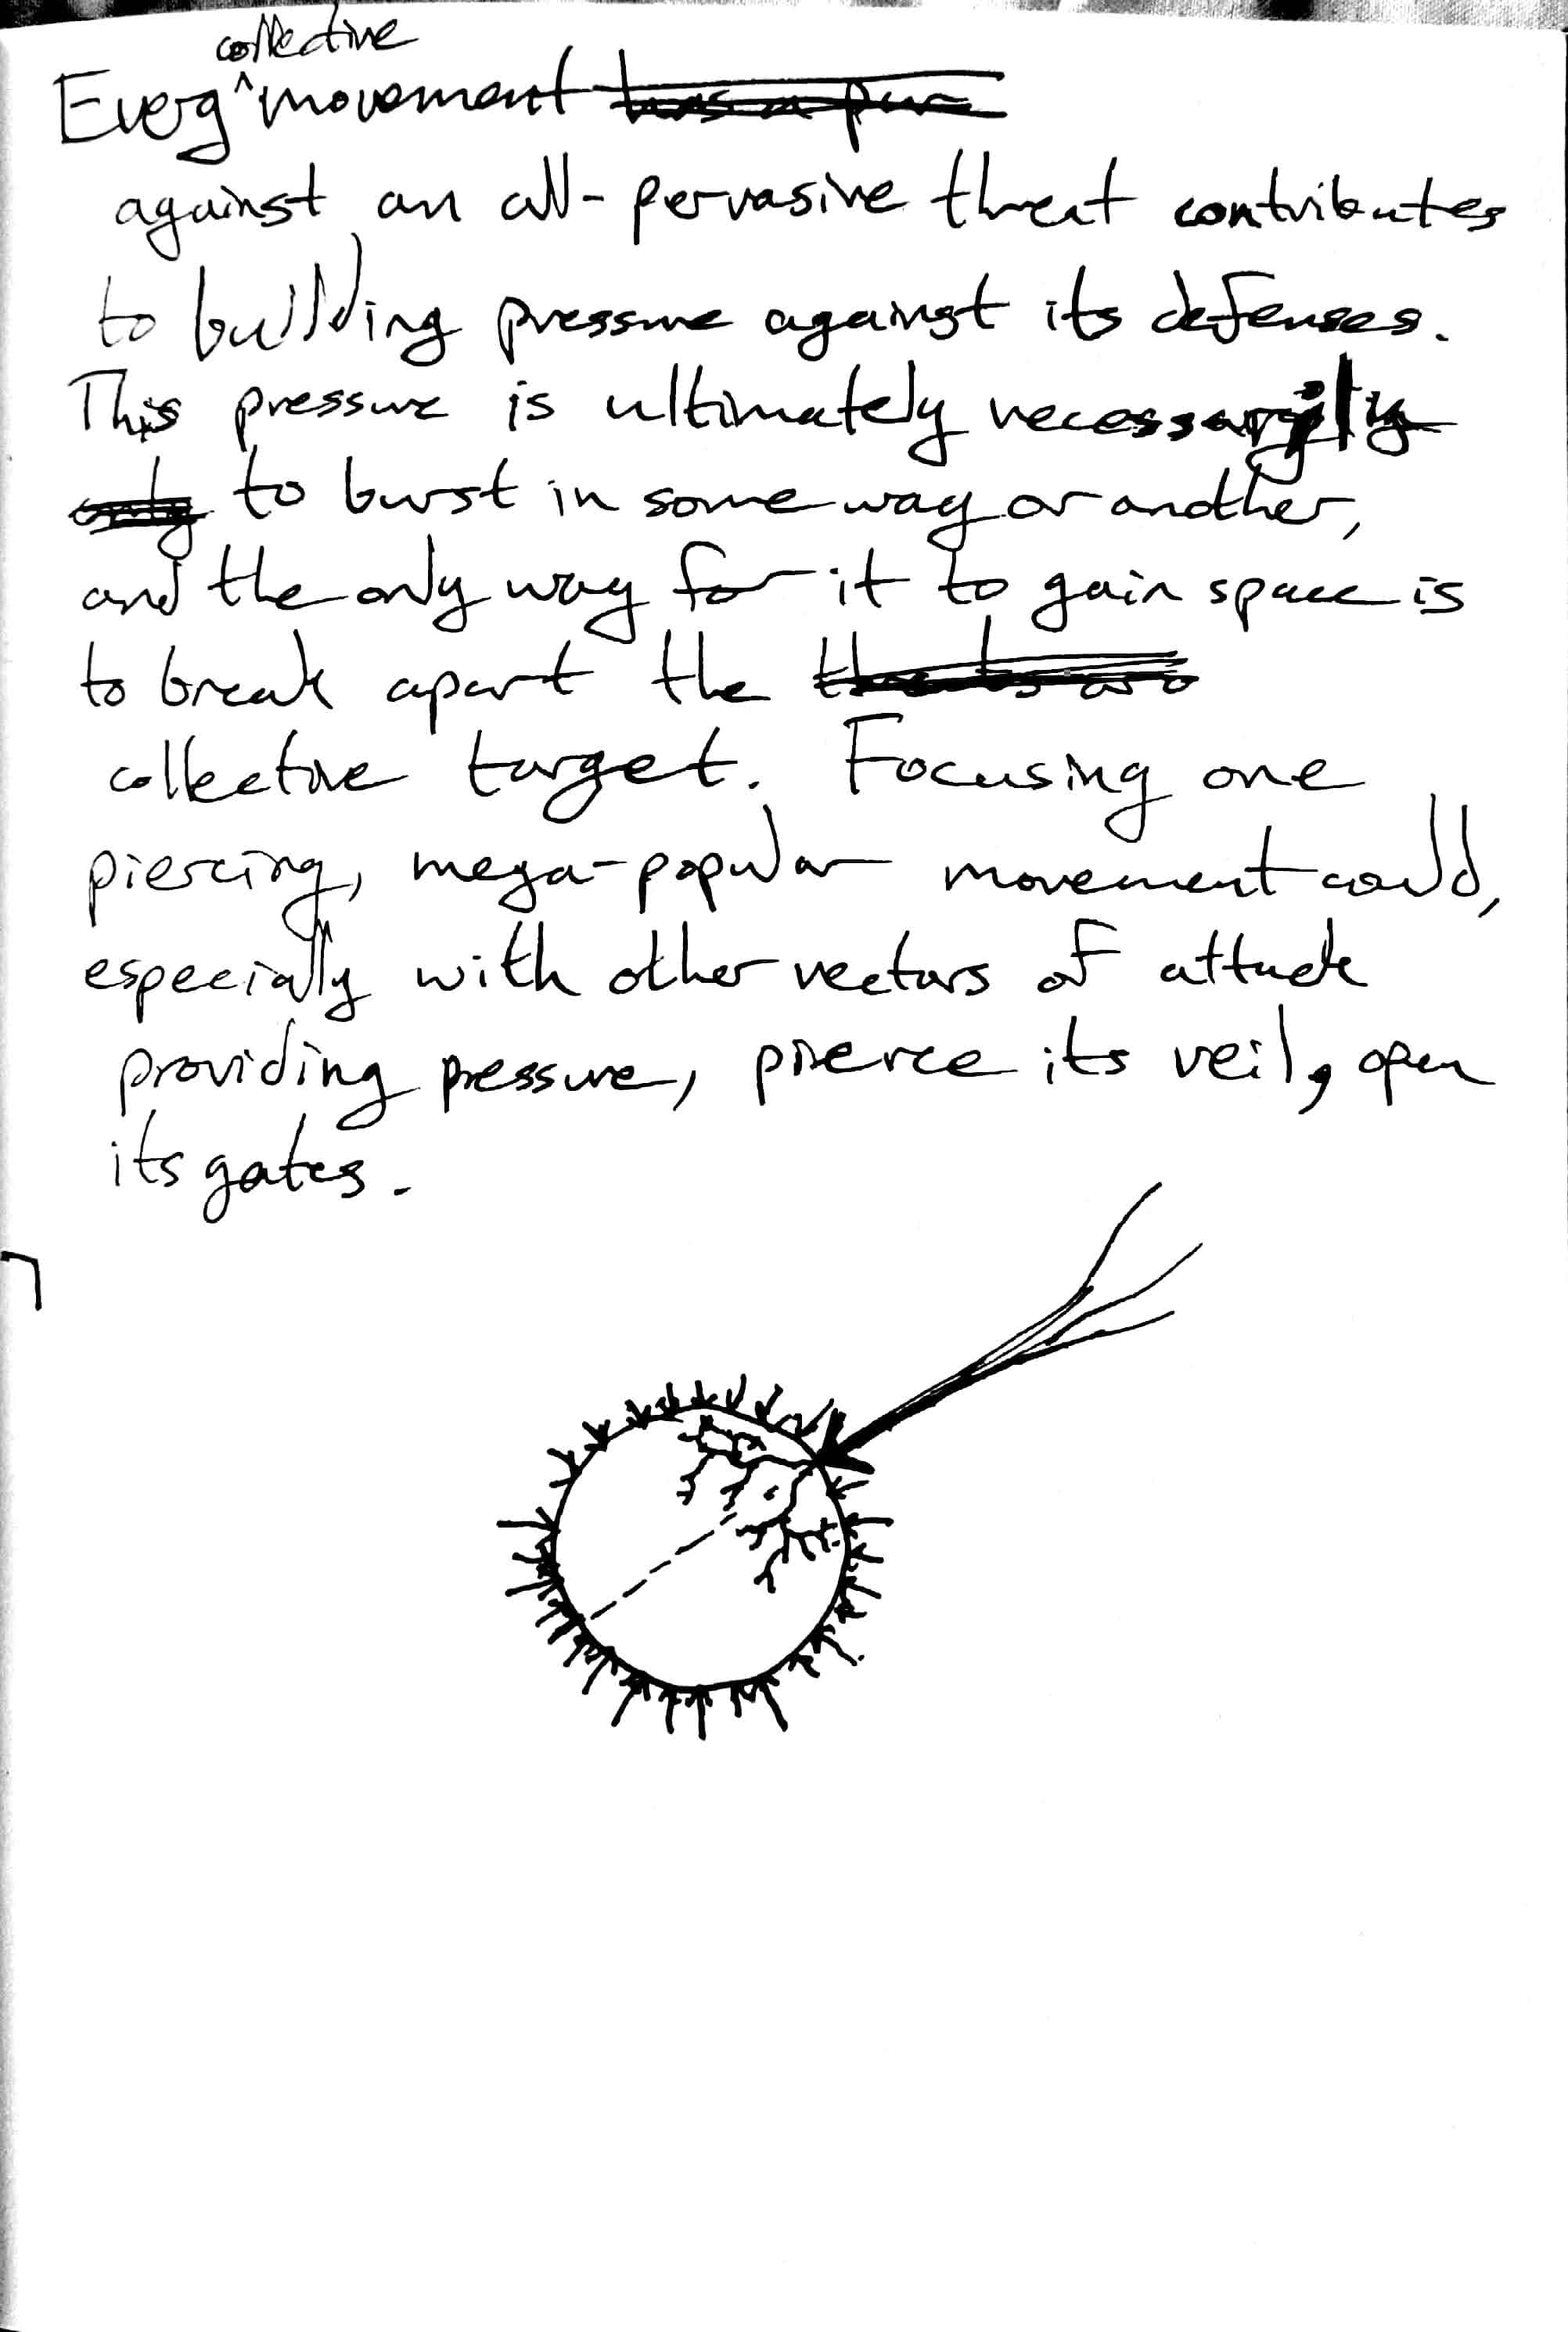 collective
Every ^ movement
against an all-pervasive threat contributes
to building pressure against its defenses.
This pressure is ultimately necessarily
to burst in some way or another,
and the only way for it to gain space is
to break apart the
collective target. Focusing one
piercing, mega-popular movement could,
especially with other vectors of attack
providing pressure, pierce its veil, open
its gates.